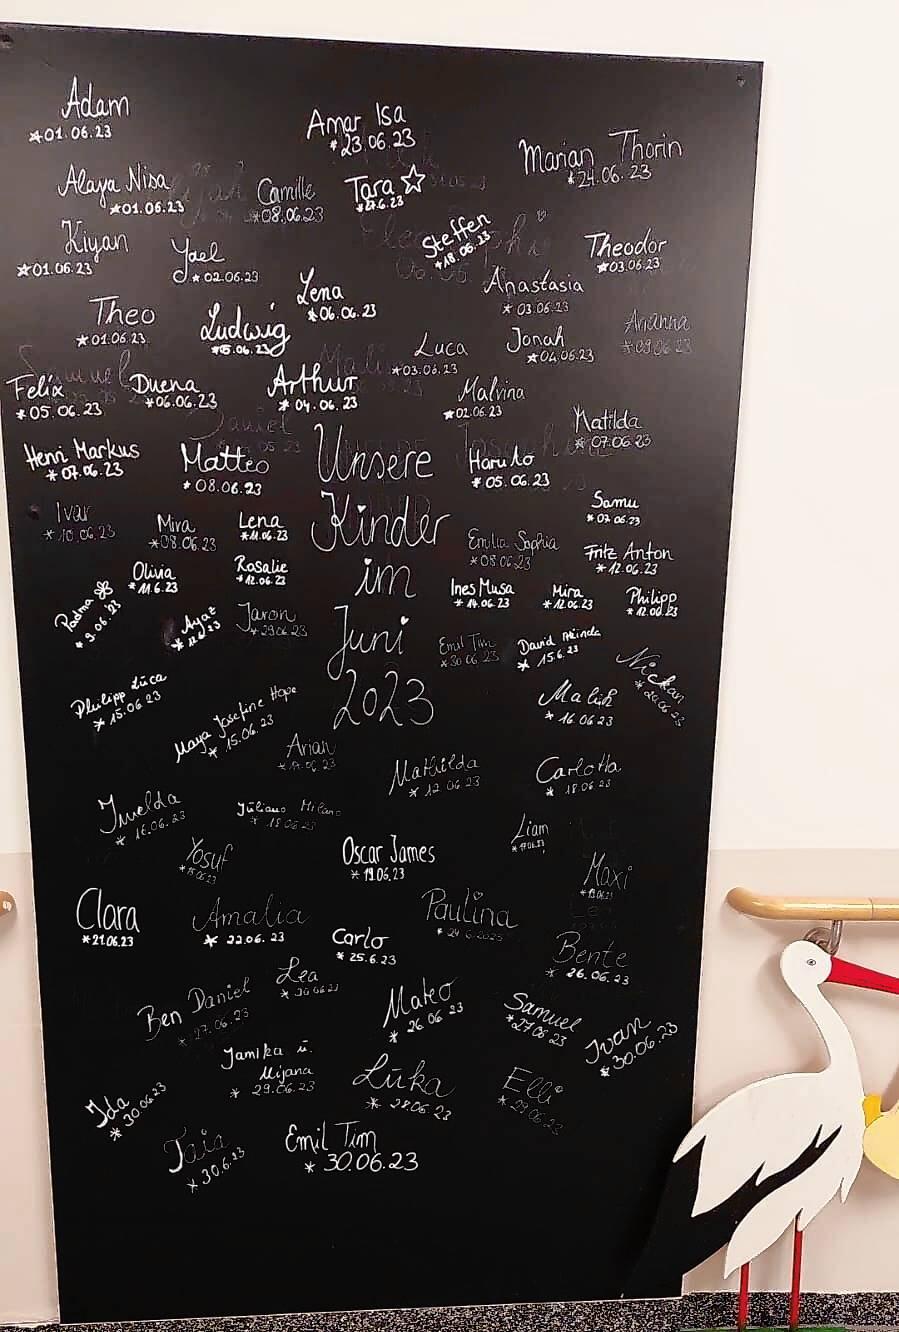 Adam
*01.06.23
Amar Isa
*23.06.23
Marian Thorin
*24.06.23
Alaya Nisa
*01.06.23
Camille
*08.06.23
Tara ☆
*27.6.23
Kiyan
*01.06.23
Yael
*02.06.23
Steffen
*18.06.23
Theodor
*03.06.23
Lena
*06.06.23
Anastasia
*03.06.23
Theo
*01.06.23
Ludwig
*05.06.23
Luca
*03.06.23
Jonah
*04.06.23
Arianna
*09.06.23
Felix
*05.06.23
Duena
*06.06.23
Arthur
*04.06.23
Malvina
*02.06.23
Matilda
*07.06.23
Henri Markus
*07.06.23
Matteo
*08.06.23
Unsere
Kinder
im
Juni
2023
Haruto
*05.06.23
Samu
*07.06.23
Ivar
*10.06.23
Mira
*08.06.23
Lena
*11.06.23
Emilia Sophia
*08.06.23
Fritz Anton
*12.06.23
Olivia
*11.6.23
Rosalie
*12.06.23
Ines Musa
*14.06.23
Mira
*12.06.23
Philipp
*12.06.23
Padma
*9.06.23
Ayaz
Jaron
*29.06.23
Emil Tim
*30.06.23
David
*15.6.23
Nickan
Philipp Luca
*15.06.23
Maya Josefine Hope
*15.06.23
Malik
*16.06.23
Arian
Mathilda
*12.06.23
Carlotta
*18.06.23
Imelda
*16.06.23
Juliano Milano
*18.06.23
Liam
Yosuf
Oscar James
*19.06.23
Maxi
Clara
*21.06.23
Amalia
*22.06.23
Paulina
*24.6.2023
Carlo
*25.6.23
Bente
*26.06.23
Ben Daniel
*27.06.23
Lea
Mateo
*26.06.23
Samuel
*27.06.23
Ivan
*30.06.23
Jamika u.
Mijana
*29.06.23
Luka
*28.06.23
Elli
*29.06.23
Ida
*30.06.23
Taia
*30.6.23
Emil Tim
*30.06.23